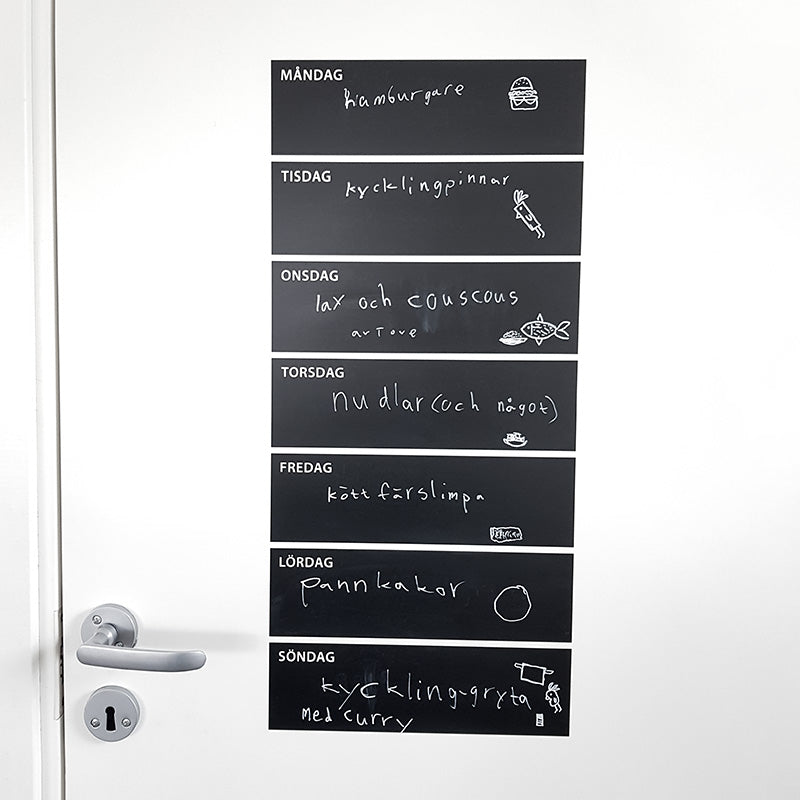 MÅNDAG
hamburgare
TISDAG
kycklingpinnar
ONSDAG
lax och couscous
av Tove
TORSDAG
nudlar (och något)
FREDAG
köttfärslimpa
LÖRDAG
pannkakor
SÖNDAG
kyckling-gryta
med curry